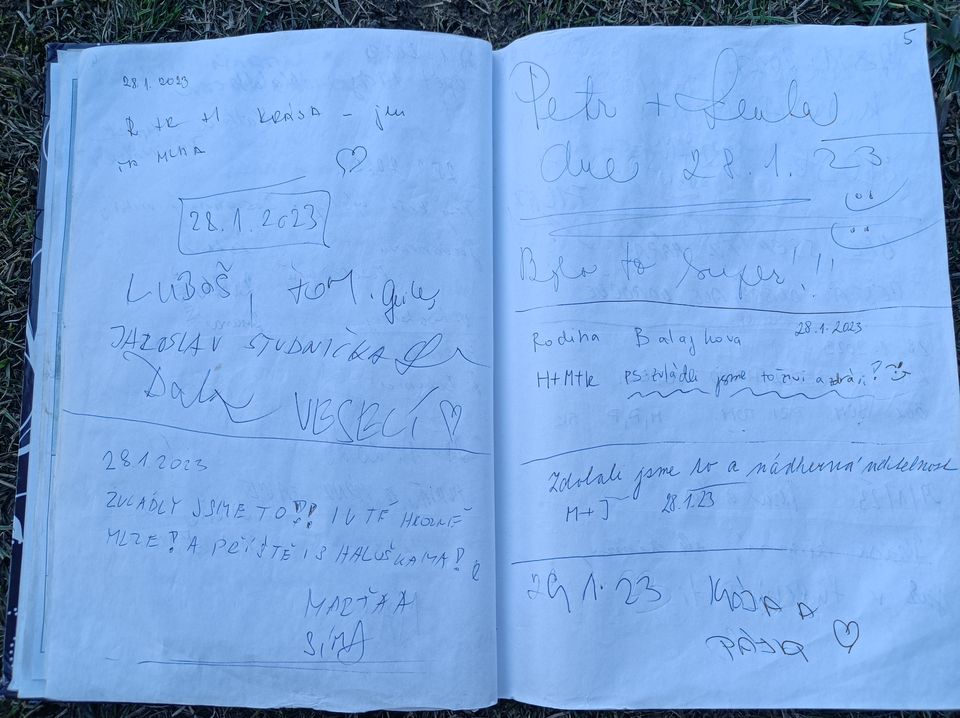 28.1.2023
KRÁSA - jen
MLHA
28.1.2023
LUBOŠ, TOM.
JAROSLAV STUDNIČKA
VESELÍ
28.1.2023
ZVLÁDLY JSME TO!! I V TÉ HROZNÉ
MLZE! A PŘÍŠTĚ I S HALUŠKAMA!
MARŤA A
SÍMA
5
Petr + Lenka
dne 28.1.23
Bylo to super!!!
Rodina Balajkova 28.1.2023
H+M+K PS: zvládli jsme to živí a zdraví!
Zdolali jsme to a nádherná viditelnost
M+J 28.1.23
29 1. 23 KÁJA A
PÁŤA